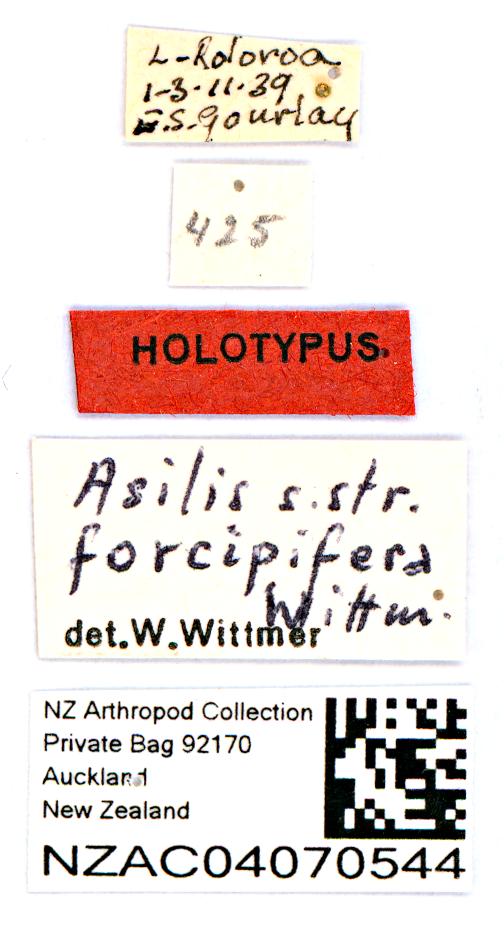 L-Rotoroa
1-3-11-39
E.S. Gourlay
425
HOLOTYPUS.
Asilis s.str.
forcipifera
Wittm.
det.W.Wittmer
NZ Arthropod Collection
Private Bag 92170
Auckland
New Zealand
NZAC04070544